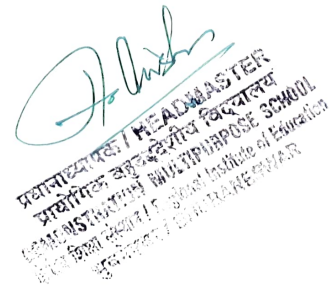 प्रधानाध्यापक / HEADMASTER
प्रायोगिक बहुउद्देशीय विद्यालय
DEMONSTRATION MULTIPURPOSE SCHOOL
क्षेत्रीय शिक्षा संस्थान / Regional Institute of Education
भुवनेश्वर / BHUBANESWAR